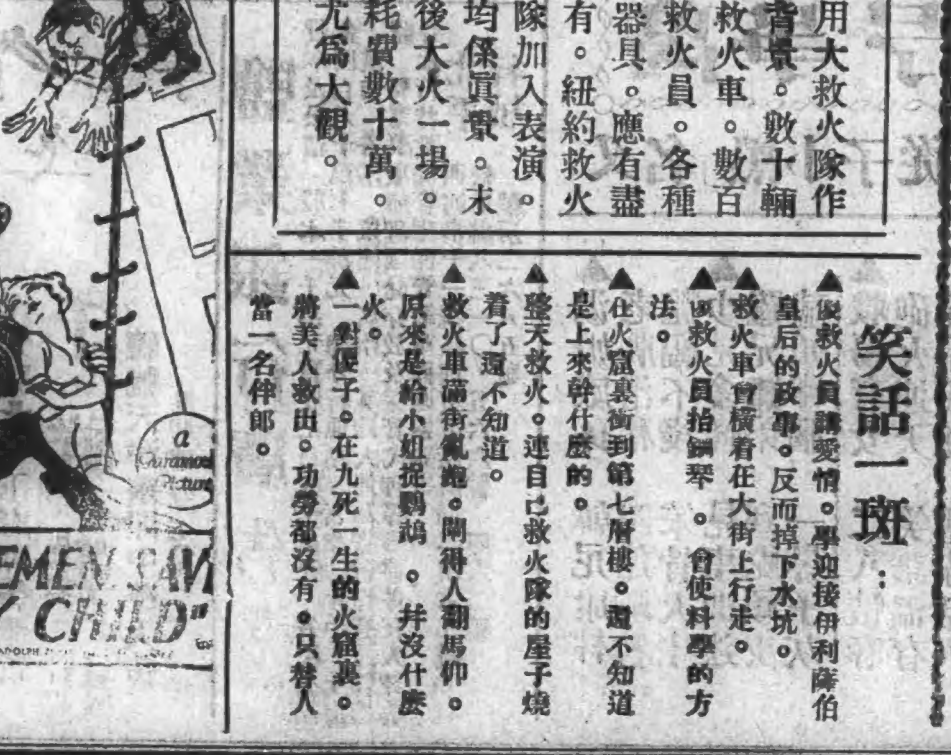 用大救火隊作
背景。數十輛
救火車。數百
救火員。各種
器具。應有盡
有。紐約救火
隊加入表演。
均係眞實。末
後大火一場。
耗費數十萬。
尤爲大觀。
笑話一斑：
▲傻救火員講愛情。學迎接伊利薩伯
皇后的故事。反而掉下水坑。
▲救火車會橫着在大街上行走。
▲傻救火員抬鋼琴。會使科學的方
法。
▲在火窟裏衝到第七層樓。還不知道
是上來幹什麼的。
▲整天救火。連自己救火隊的屋子燒
着了還不知道。
▲救火車滿街亂跑。鬧得人翻馬仰。
原來是給小姐捉鸚鵡。并沒什麼
火。
▲一對傻子。在九死一生的火窟裏。
將美人救出。功勞都沒有。只替人
當一名伴郎。
a
Paramount
Picture
EMEN SAV
Y CHILD"
ADOLPH